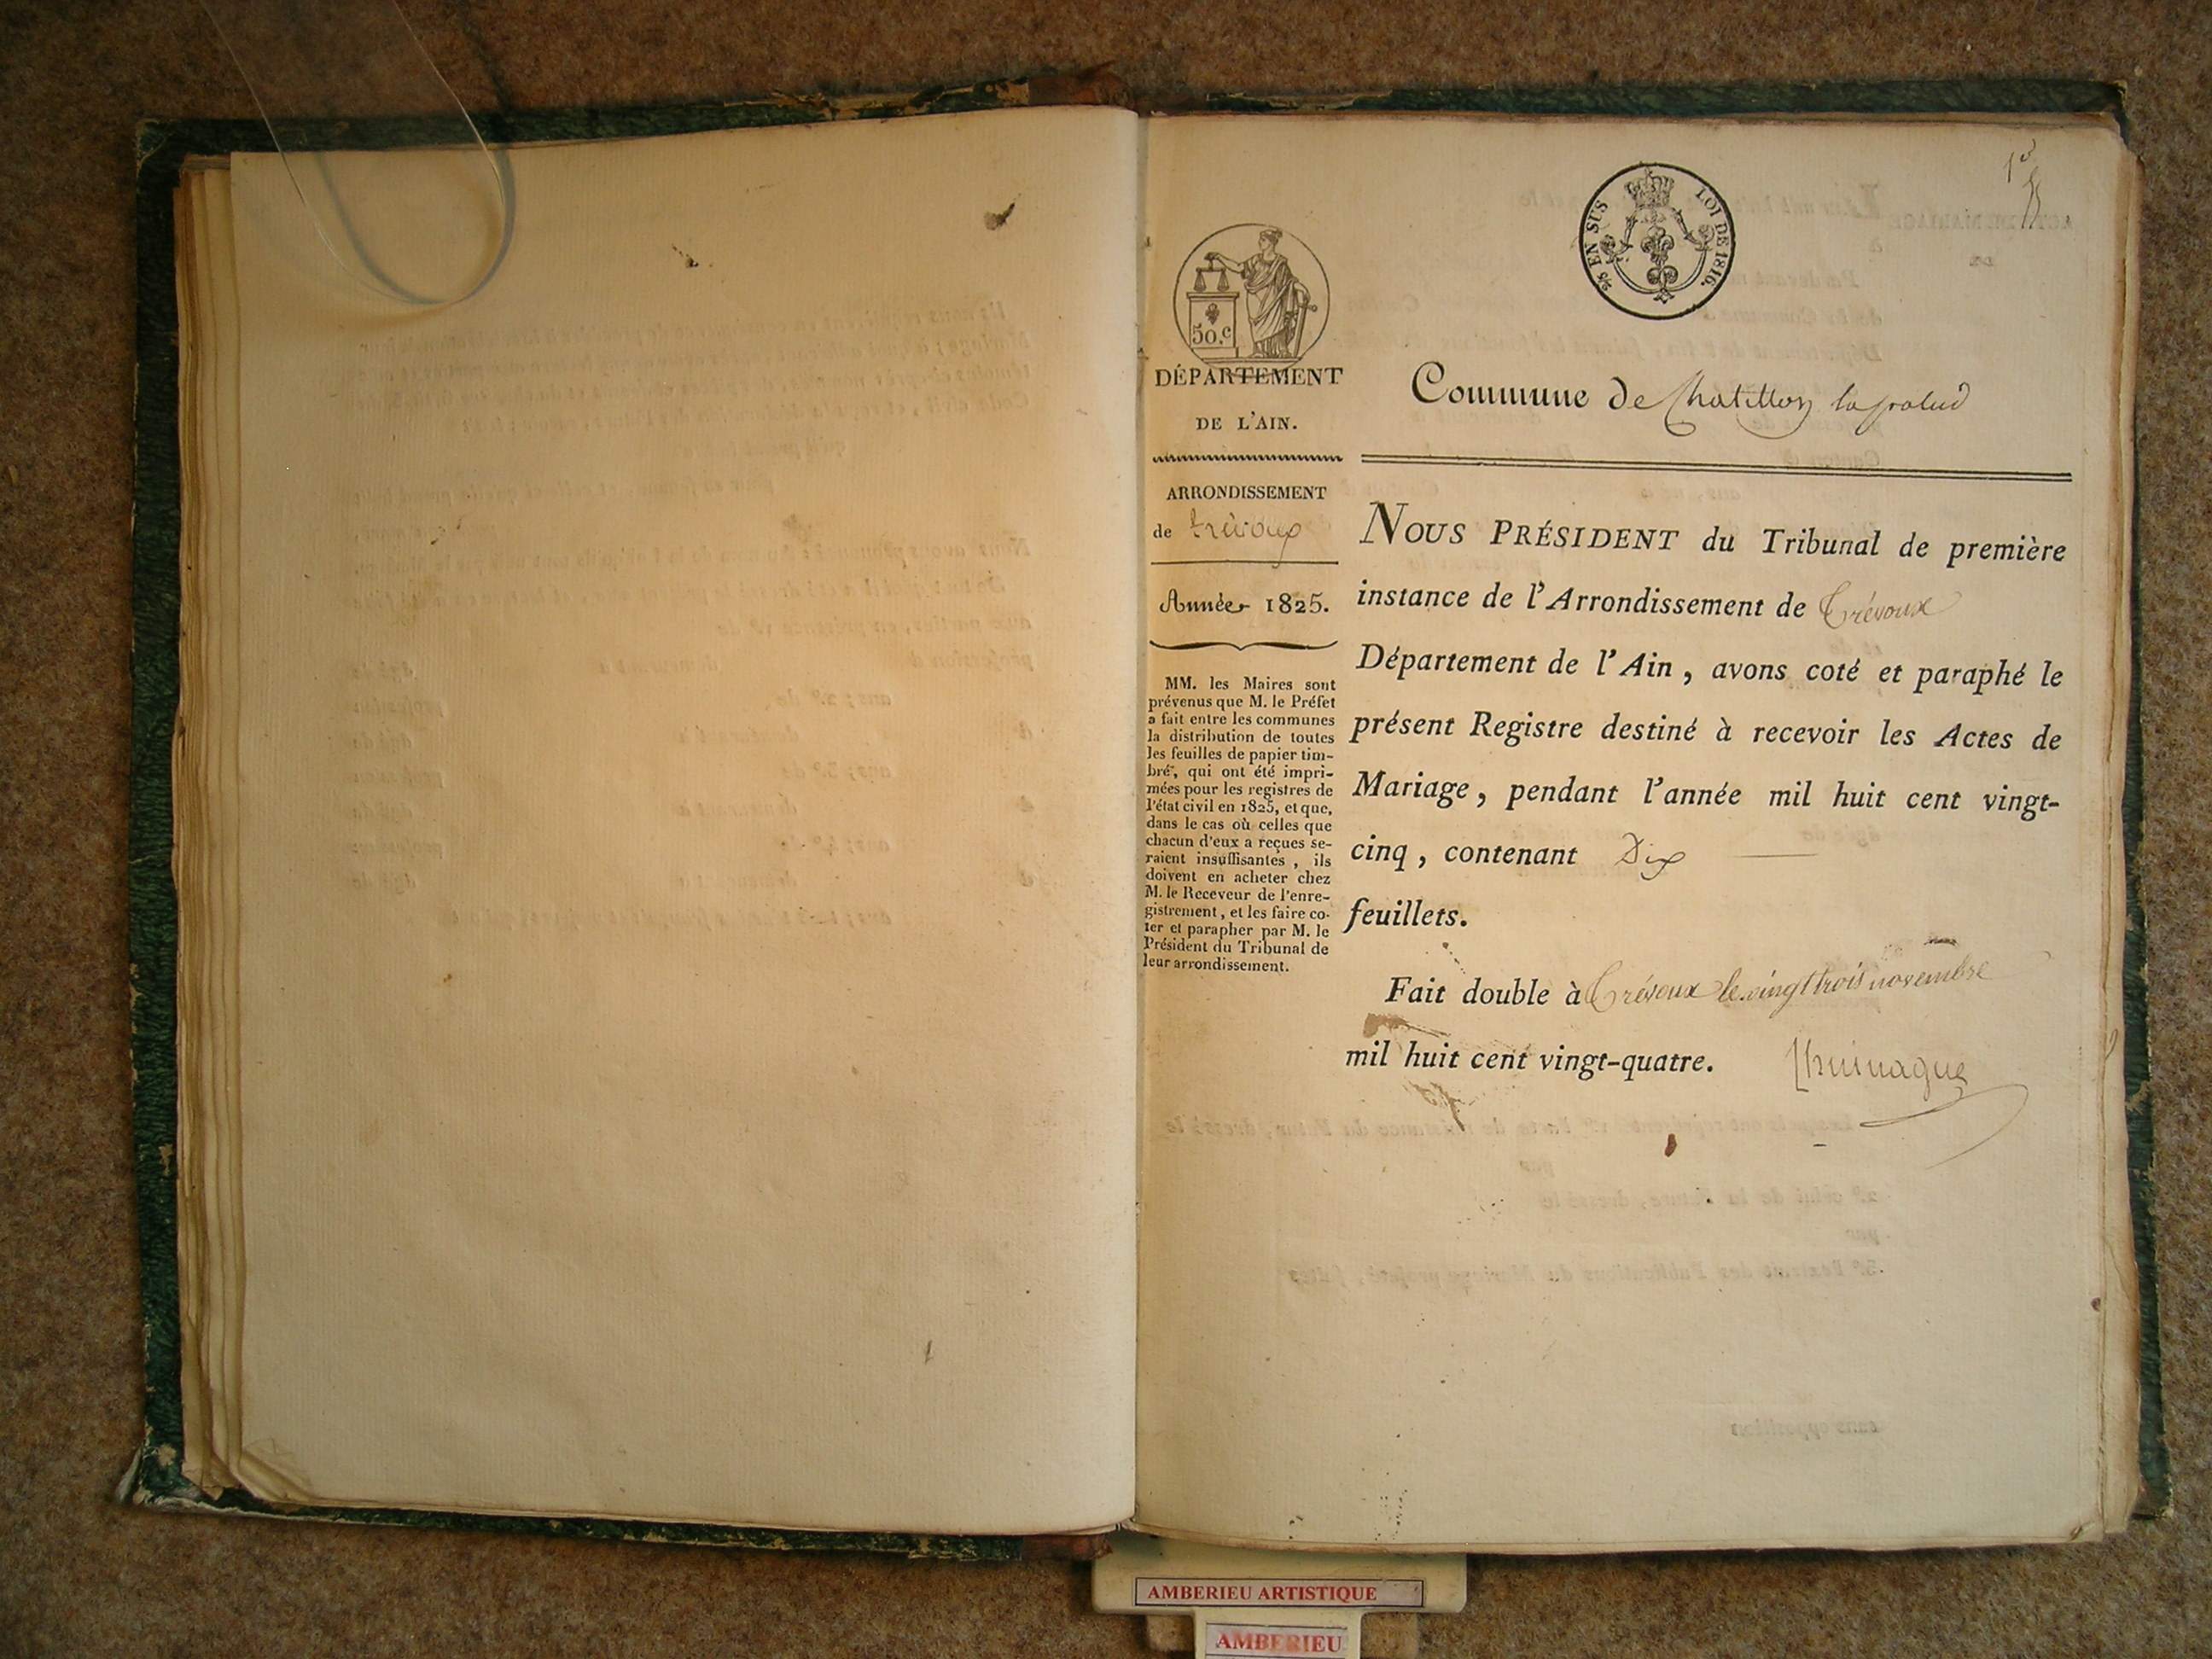 1er
2/5 EN SUS LOI DE 1816.
50.c
DÉPARTEMENT
DE L'AIN.
ARRONDISSEMENT
de trévoux
Année 1825.
MM. les Maires sont
prévenus que M. le Préfet
a fait entre les communes
la distribution de toutes
les feuilles de papier tim-
bré, qui ont été impri-
mées pour les registres de
l'état civil en 1825, et que,
dans le cas où celles que
chacun d'eux a reçues se-
raient insuffisantes, ils
doivent en acheter chez
M. le Receveur de l'enre-
gistrement, et les faire co-
ter et parapher par M. le
Président du Tribunal de
leur arrondissement.
Commune de Chatillon la palud
NOUS PRÉSIDENT du Tribunal de première
instance de l'Arrondissement de Trévoux
Département de l'Ain, avons coté et paraphé le
présent Registre destiné à recevoir les Actes de
Mariage, pendant l'année mil huit cent vingt-
cinq, contenant Dix
feuillets.
Fait double à Trévoux le vingt trois novembre
mil huit cent vingt-quatre.
AMBERIEU ARTISTIQUE
AMBERIEU